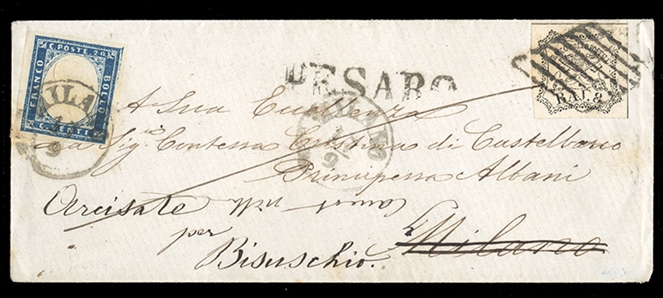 C. POSTE 20
FRANCO
BOLLO
CENTI
MILA
9
PESARO
BAJ. 8
MILANO
9
A Sua Eccellenza
La Sig.ra Contessa Cristina di Castelbarco
Principessa Albani
Arcisate
per
Bisuschio.
Milano